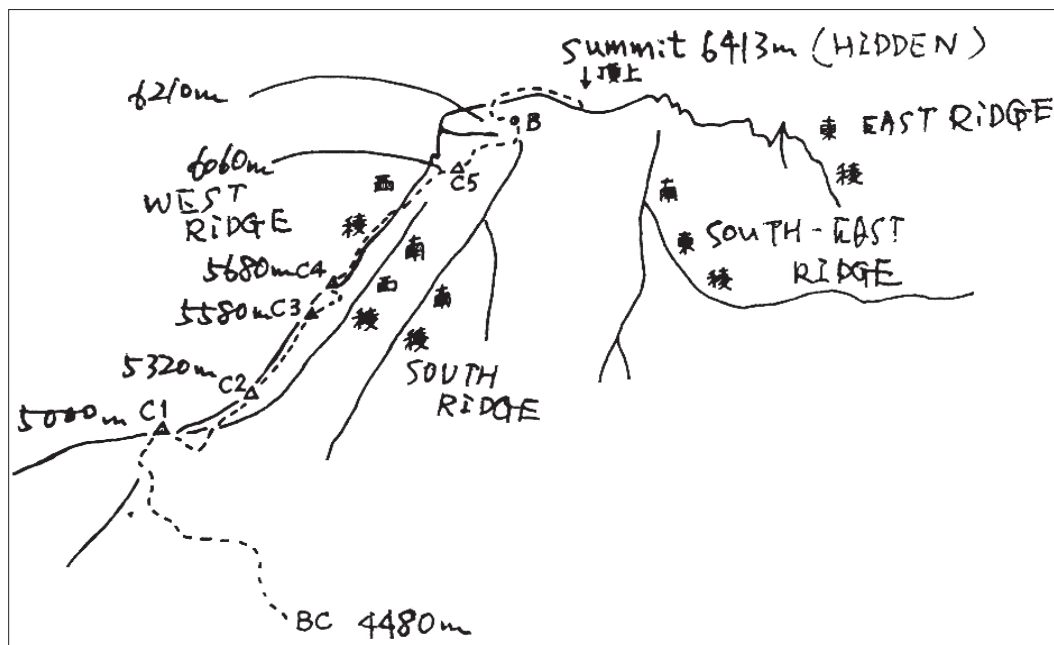 summit 6413m (HIDDEN)
頂上
6210m
B
東稜
EAST RiDGE
6060m
C5
WEST
RiDGE
西稜
南東稜
SOUTH-EAST
RIDGE
5680m C4
南西稜
南稜
5580m C3
SOUTH
RIDGE
5320m C2
5000m C1
BC 4480m